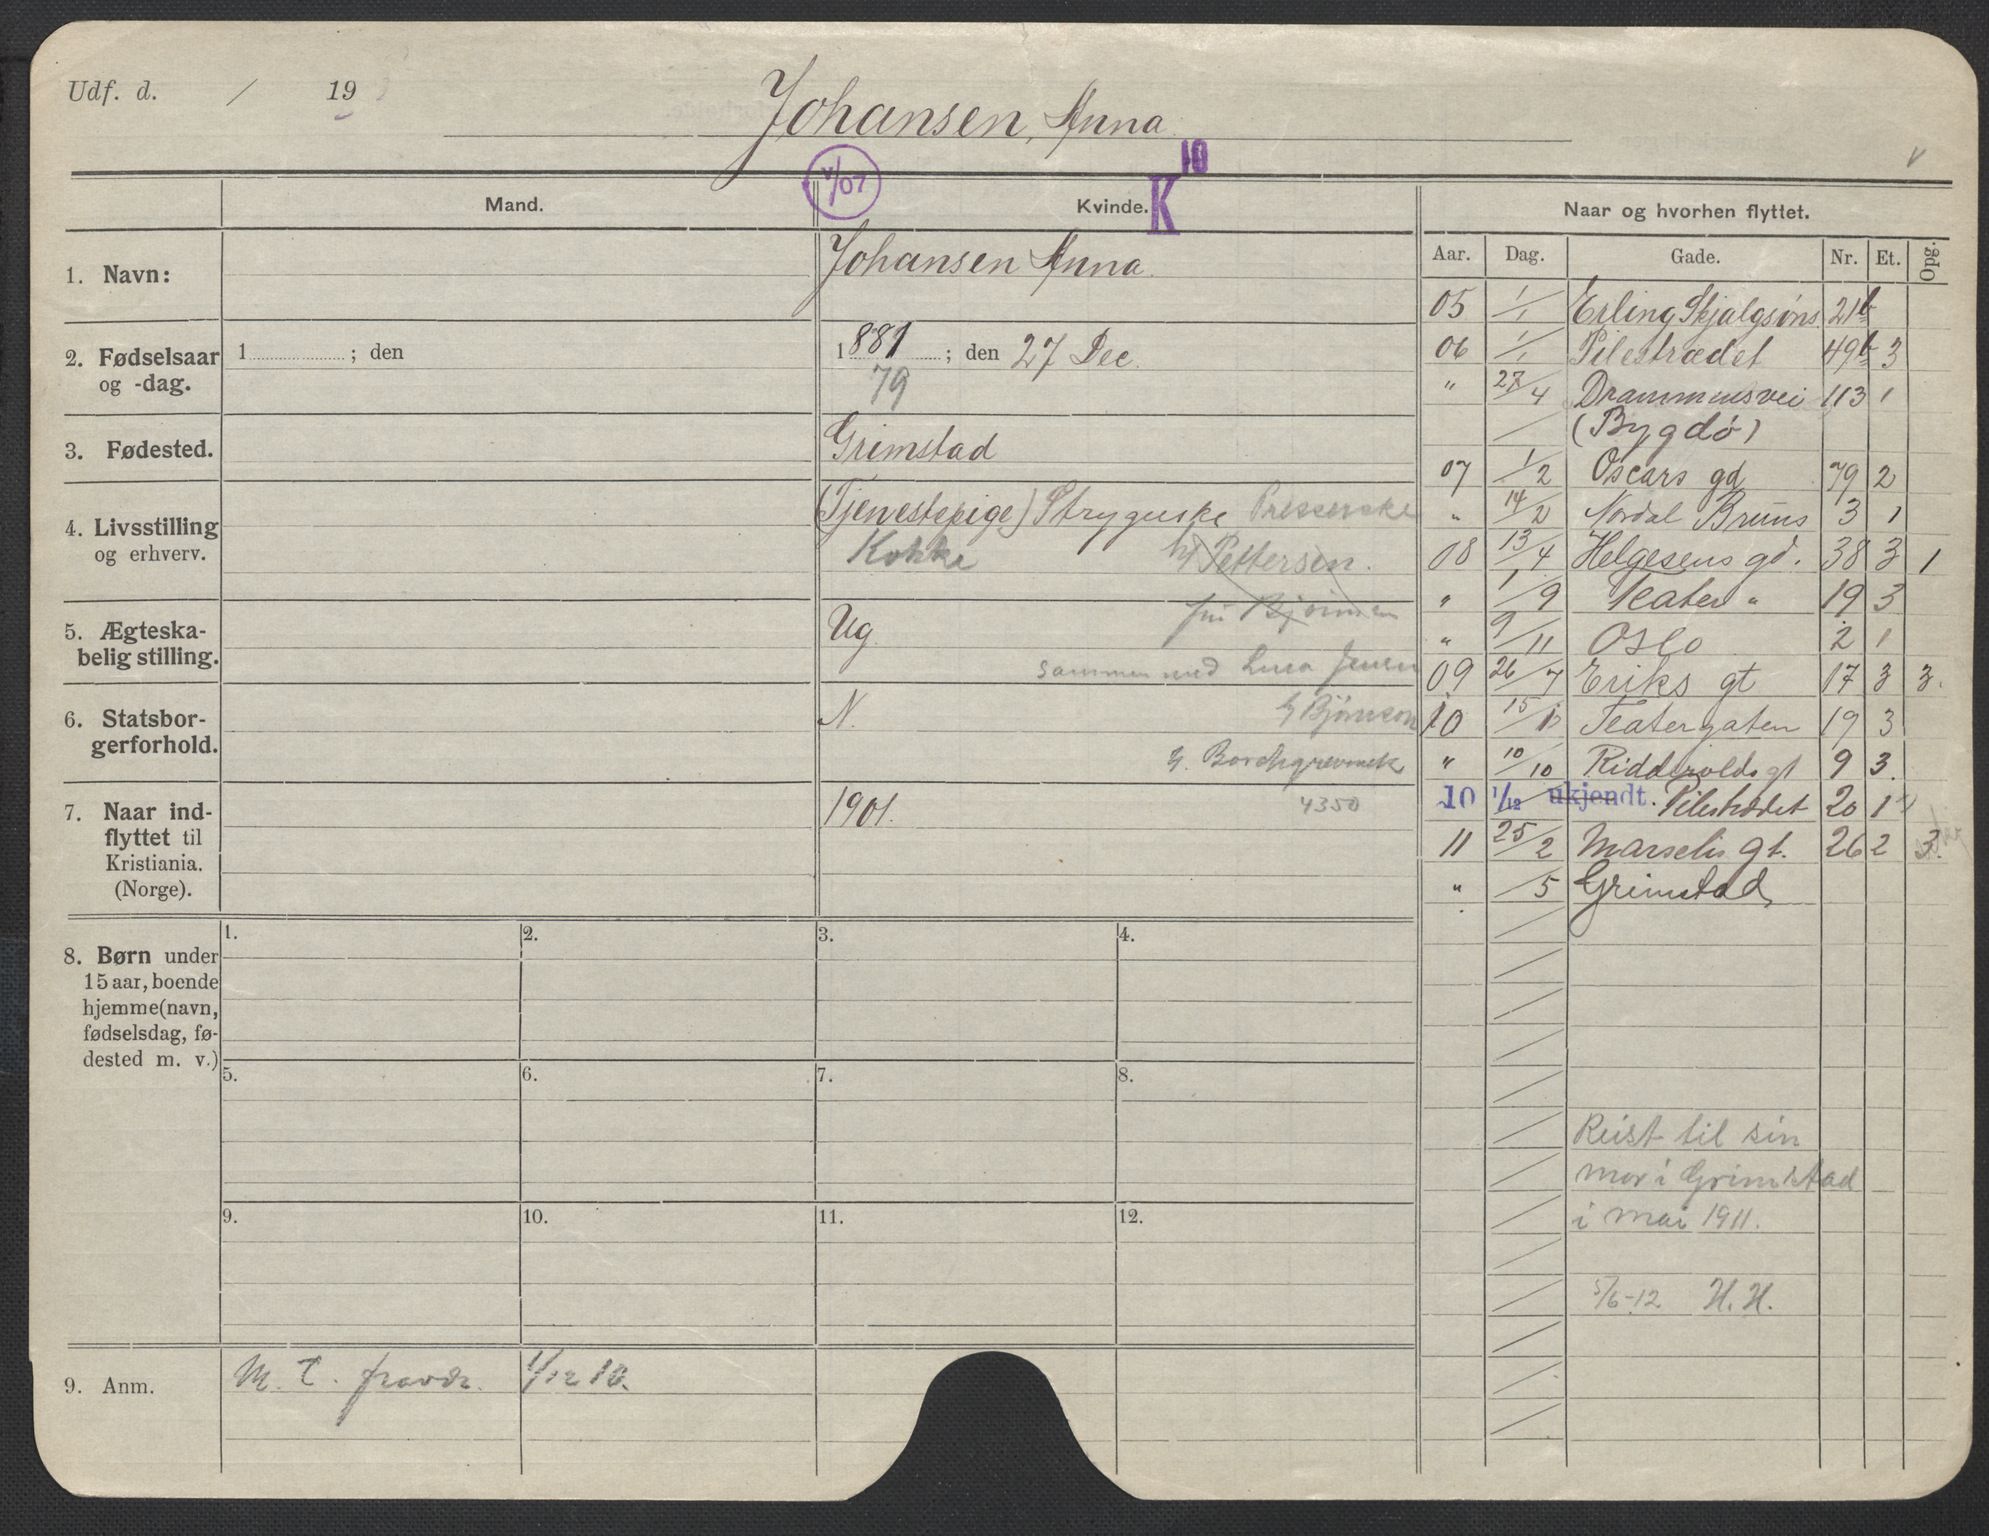 Udf. d. / 19
Johansen, Anna
V/07
K 10
v
Mand.
Kvinde.
Naar og hvorhen flyttet.
Aar. Dag. Gade. Nr. Et. Opg.
1. Navn:
Johansen Anna
2. Fødselsaar
og -dag.
1 ; den
1881 ; den 27 Dec.
79
3. Fødested.
Grimstad
4. Livsstilling
og erhverv.
(Tjenestepige) Strygerske Presserske
Kokke h/ Pettersen.
5. Ægteska-
belig stilling.
Ug.
sammen med Jensen
6. Statsbor-
gerforhold.
N.
h/ Björnson
h. Borchgrevink
7. Naar ind-
flyttet til
Kristiania.
(Norge).
1901.
4350
05 1/1 Erling Skjalgsøns 21b
06 1/1 Pilestrædet 49b 3
" 27/4 Drammensvei 113 1
/ (Bygdø)
07 1/2 Oscars gd 79 2
" 14/2 Nordal Bruns 3 1
08 13/4 Helgesens gd. 38 3 1
" 1/9 Teater " 19 3
" 9/11 Oslo 2 1
09 26/7 Eriks gt 17 3 3.
10 15/1 Teatergaten 19 3
" 10/10 Riddervolds gt 9 3.
10 1/12 ukjendt. Pilestrædet 20 1
11 25/2 Marselis gt. 26 2 3.
" /5 Grimstad
Reist til sin
mor i Grimstad
i mai 1911.
5/6-12 H. H.
8. Børn under
15 aar, boende
hjemme (navn,
fødselsdag, fø-
dested m. v.)
1. 2. 3. 4.
5. 6. 7. 8.
9. 10. 11. 12.
9. Anm.
M. T. 1/12 10.